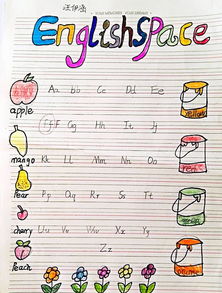 汪伊涵
EnglishSpace
Aa Bb Cc Dd Ee
apple
Ff Gg Hh Ii Jj
mango
Kk Ll Mm Nn Oo
Pear
Pp Qq Rr Ss Tt
cherry
Uu Vv Ww Xx Yy
Zz
Peach